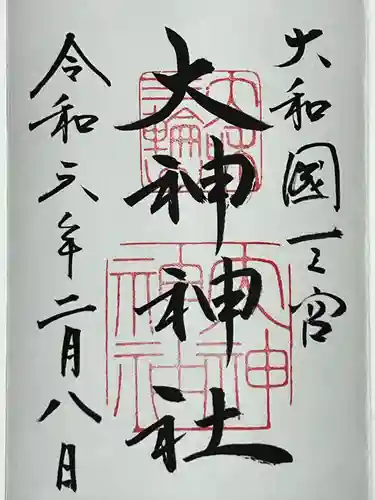 大和國一之宮
大神神社
令和六年二月八日
三輪
大神
神社